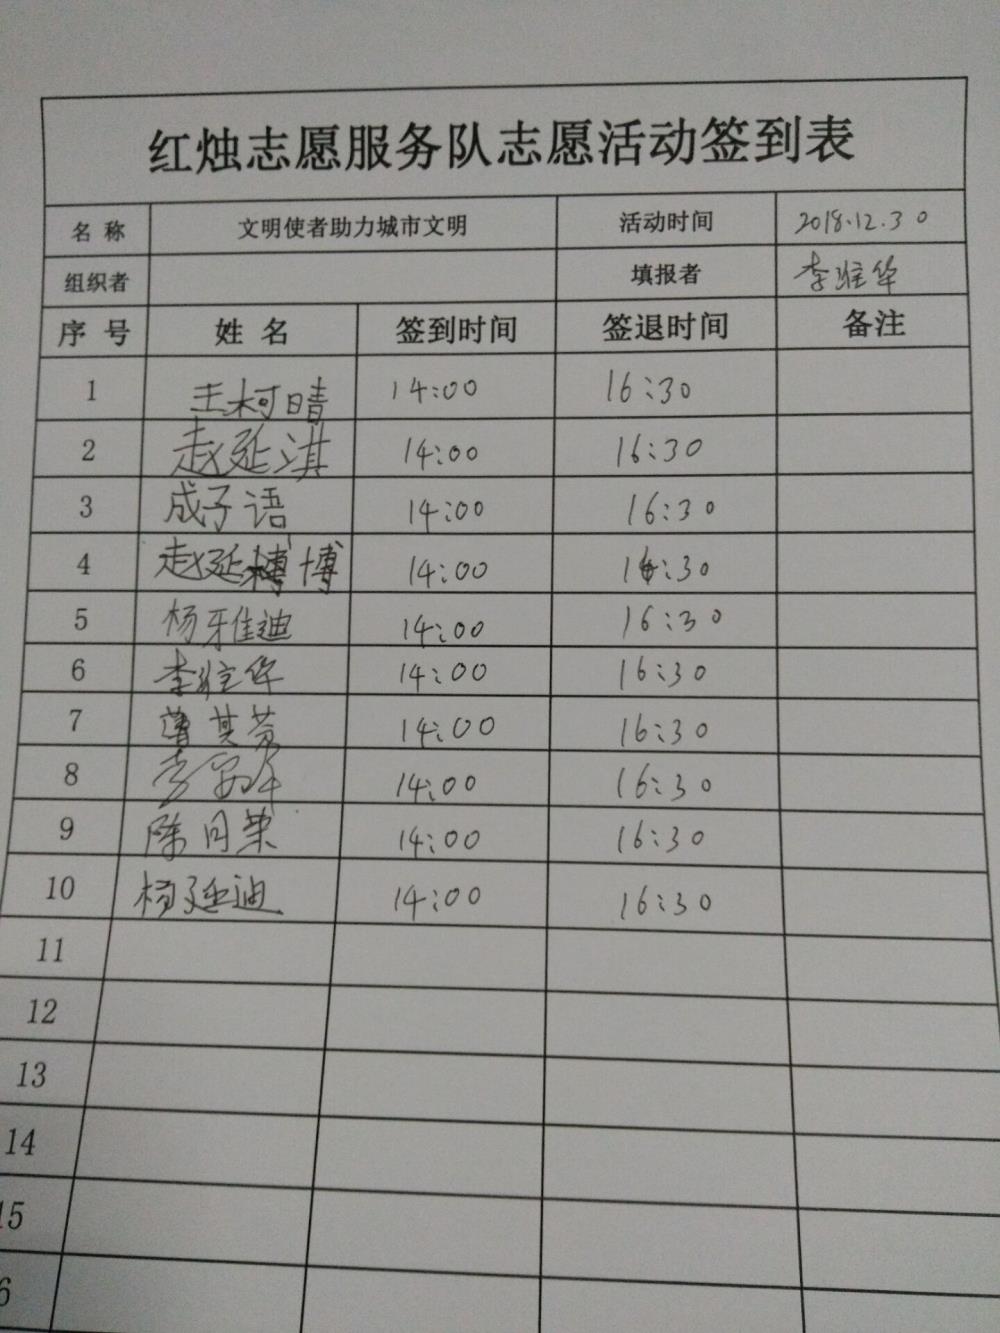 红烛志愿服务队志愿活动签到表
名 称 文明使者助力城市文明 活动时间 2018.12.30
组织者 填报者 李华
序 号 姓 名 签到时间 签退时间 备注
1 王柯晴 14:00 16:30
2 赵延淇 14:00 16:30
3 成子语 14:00 16:30
4 赵延博 14:00 16:30
5 杨雅迪 14:00 16:30
6 李华 14:00 16:30
7 其芳 14:00 16:30
8 李 14:00 16:30
9 陈月荣 14:00 16:30
10 杨延迪 14:00 16:30
11
12
13
14
15
6